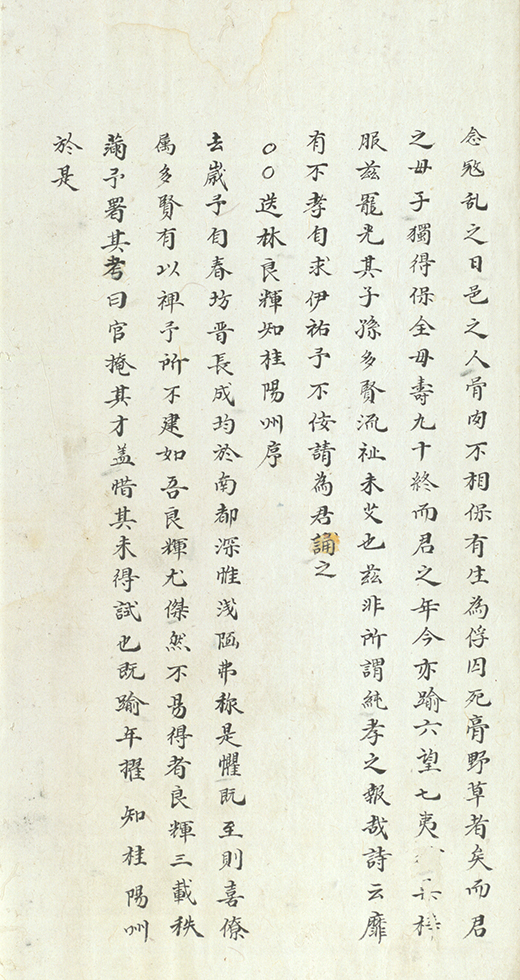 念冦乱之日邑之人骨肉不相保有生為俘囚死膏野草者矣而君
之母子獨得保全母壽九十終而君之年今亦踰六望七夷
服茲寵光其子孫多賢流祉未艾也茲非所謂純孝之報哉詩云靡
有不孝自求伊祐予不佞請為君誦之
〇〇送林良輝知桂陽州序
去嵗予自春坊晋長成均於南都深惟浅陋弗称是懼既至則喜僚
属多賢有以裨予所不建如吾良輝尤傑然不易得者良輝三載秩
滿予署其考曰官掩其才盖惜其未得試也既踰年擢 知桂陽州
於是